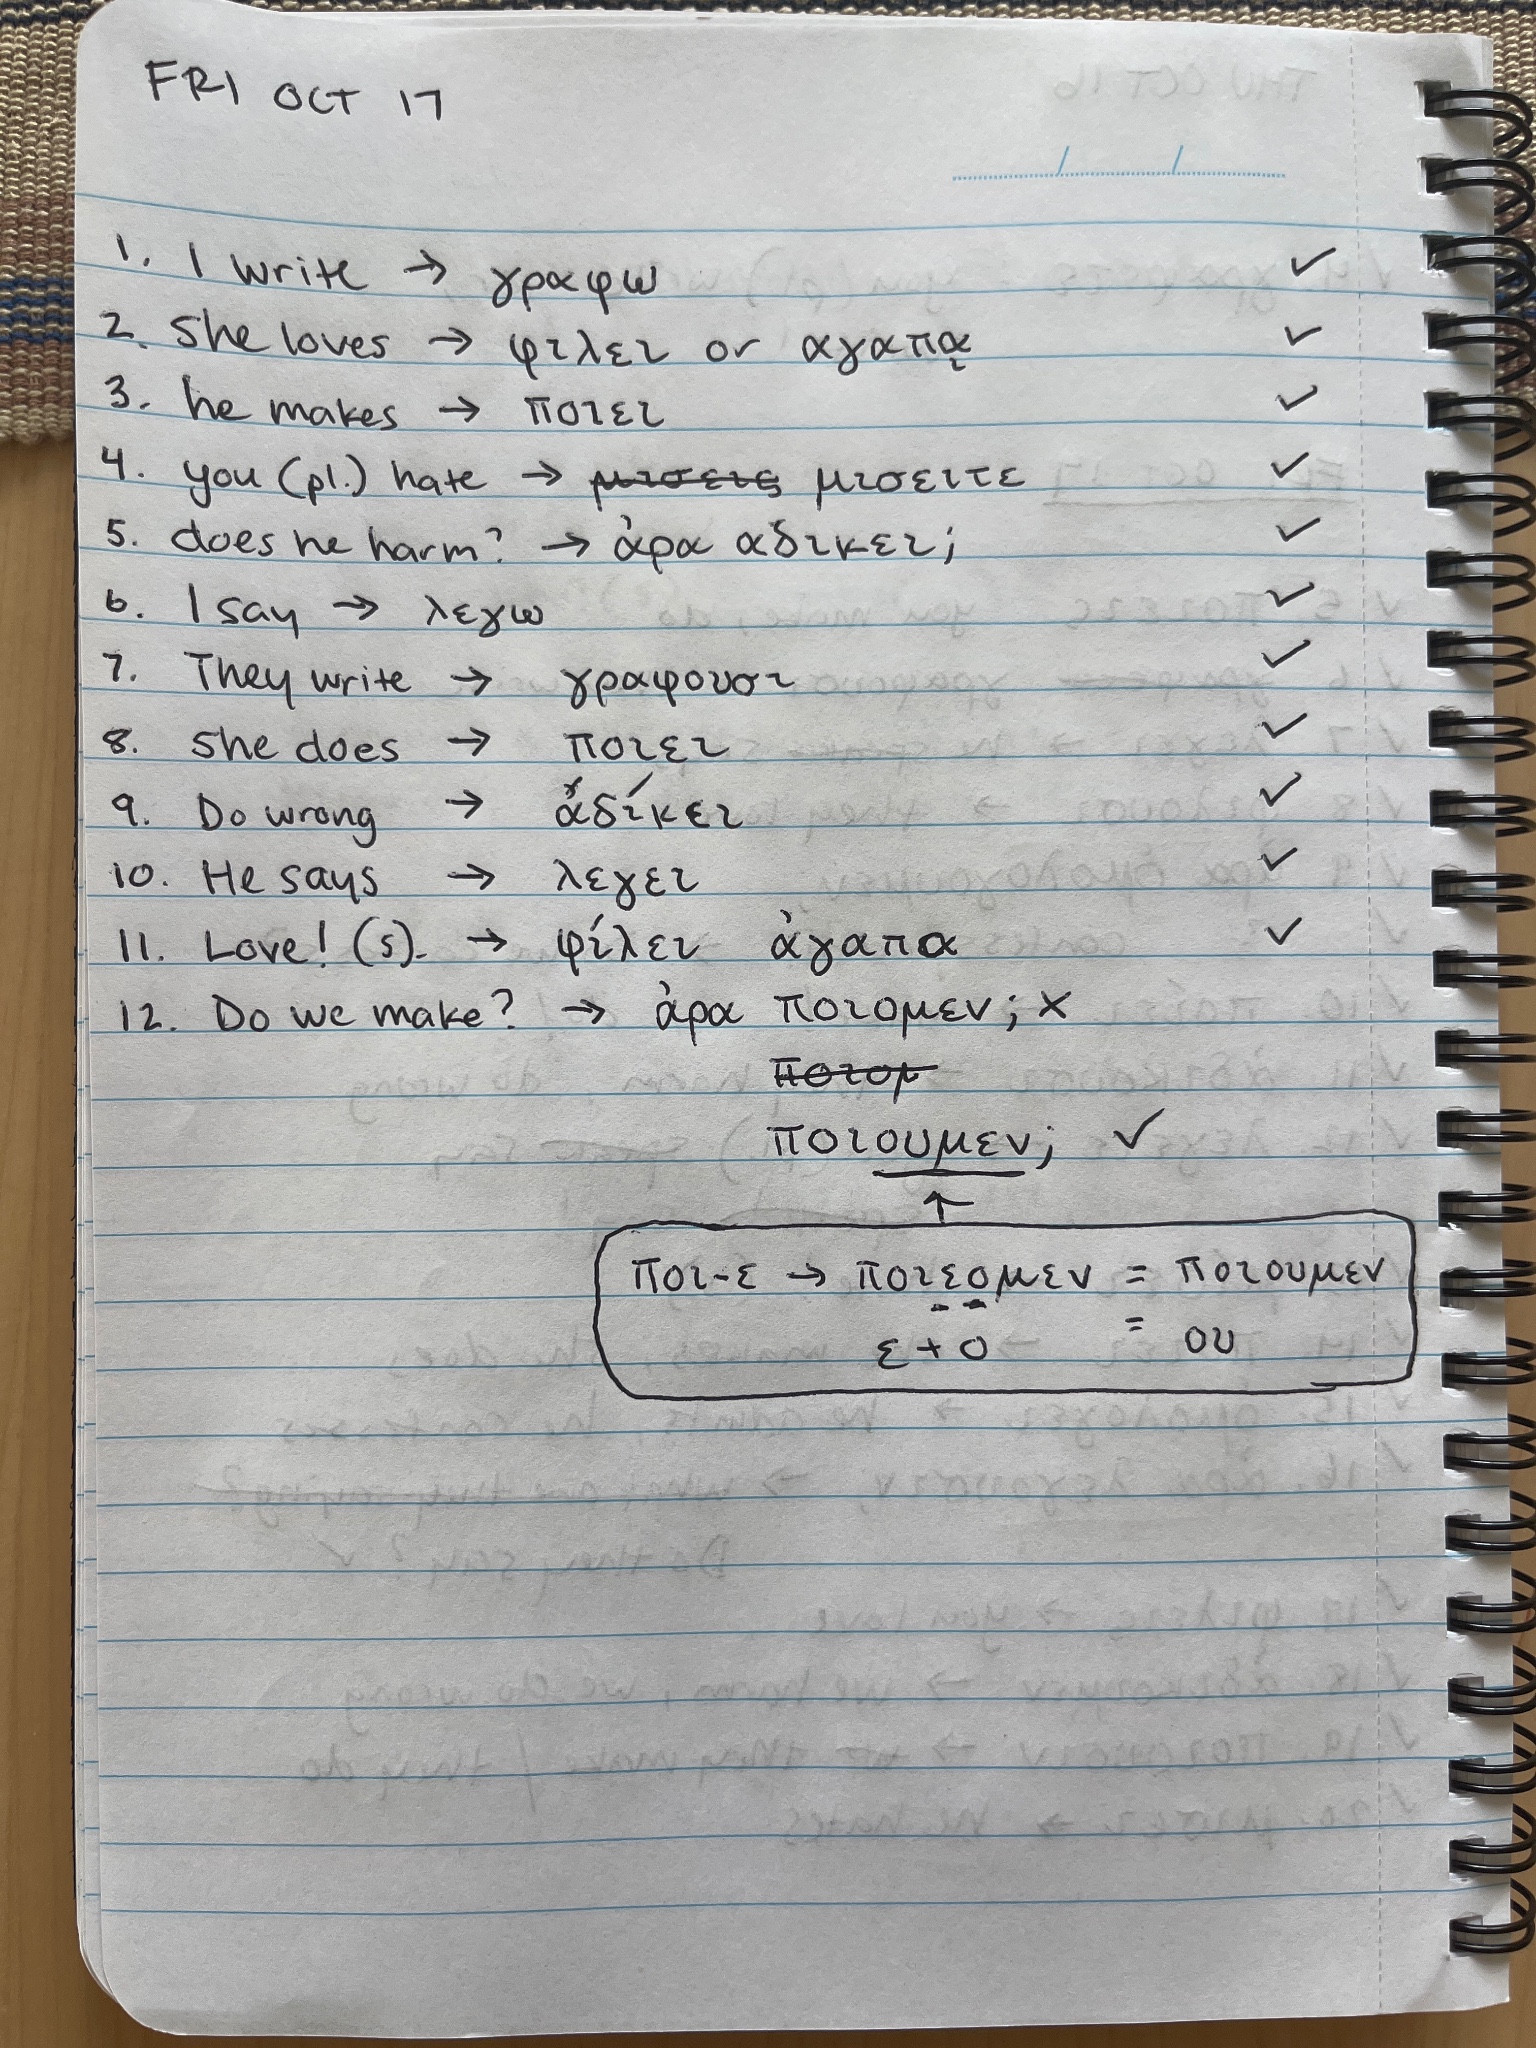 FRI OCT 17
1. I write → γραφω ✓
2. She loves → φιλει or αγαπᾳ ✓
3. he makes → ποιει ✓
4. you (pl.) hate → μισεις μισειτε ✓
5. does he harm? → ἀρα αδικει; ✓
6. I say → λεγω ✓
7. They write → γραφουσι ✓
8. She does → ποιει ✓
9. Do wrong → ἀδίκει ✓
10. He says → λεγει ✓
11. Love! (s). → φίλει ἀγαπα ✓
12. Do we make? → ἀρα ποιομεν; x
ποιομ
ποιουμεν; ✓
↑
ποι-ε → ποιεομεν = ποιουμεν
ε + ο = ου